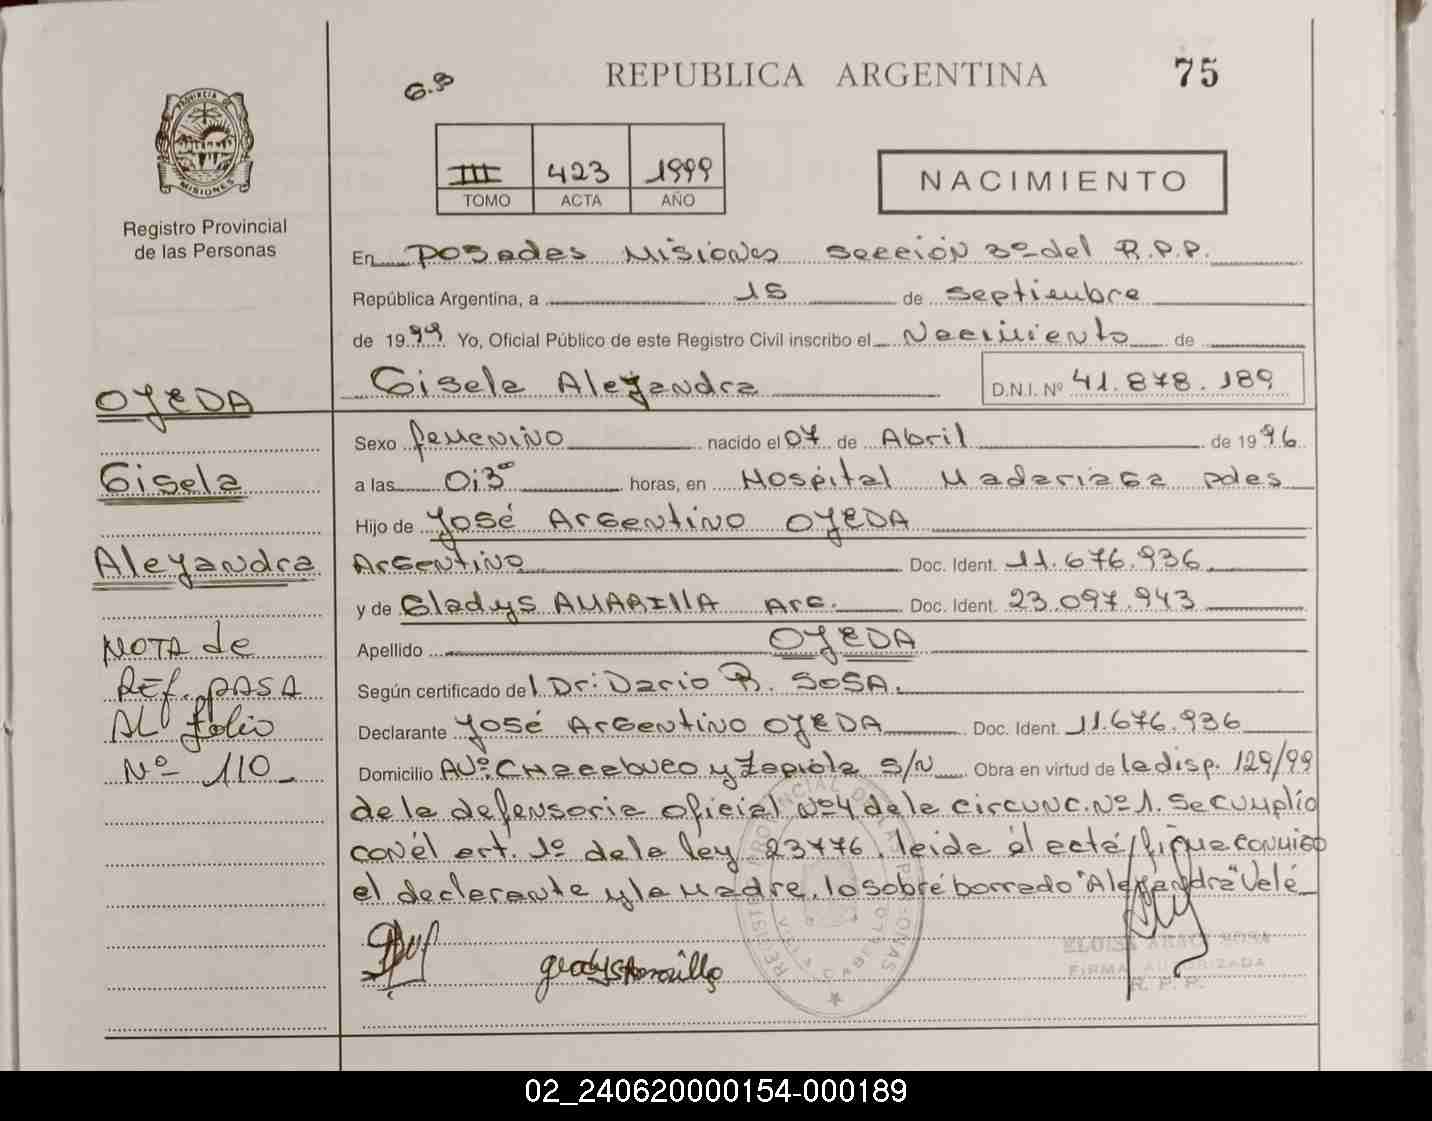 G.B
REPUBLICA ARGENTINA
75
PROVINCIA DE MISIONES
Registro Provincial
de las Personas
III 423 1999
TOMO ACTA AÑO
NACIMIENTO
En Posadas Misiones Sección 3º del R.P.P.
República Argentina, a 15 de septiembre
de 1999 Yo, Oficial Público de este Registro Civil inscribo el Nacimiento de
Gisela Alejandra D.N.I. Nº 41.878.189
OJEDA
Gisela
Alejandra
NOTA de
REf. PASA
AL folio
Nº 110
Sexo femenino nacido el 07 de Abril de 1996
a las 0:30 horas, en Hospital Madariaga pdas
Hijo de José Argentino OJEDA
Argentino Doc. Ident. 11.676.936
y de Gladys AMARIllA Arg. Doc. Ident. 23.097.943
Apellido OJEDA
Según certificado del Dr: Dario R. SOSA.
Declarante José Argentino OJEDA Doc. Ident. 11.676.936
Domicilio AVº. CHacabuco y Zapiola S/N Obra en virtud de la disp. 129/99
de la defensoria oficial Nº4 de la circunc. Nº1. Se cumplio
con él art. 1º de la ley 23776. leida él acta, firma conmigo
el declarante y la madre, lo sobré borrado "Alejandra" Vale
Gladys Amarilla
ELOISA
FIRMA AUTORIZADA
R. P. P.
02_240620000154-000189